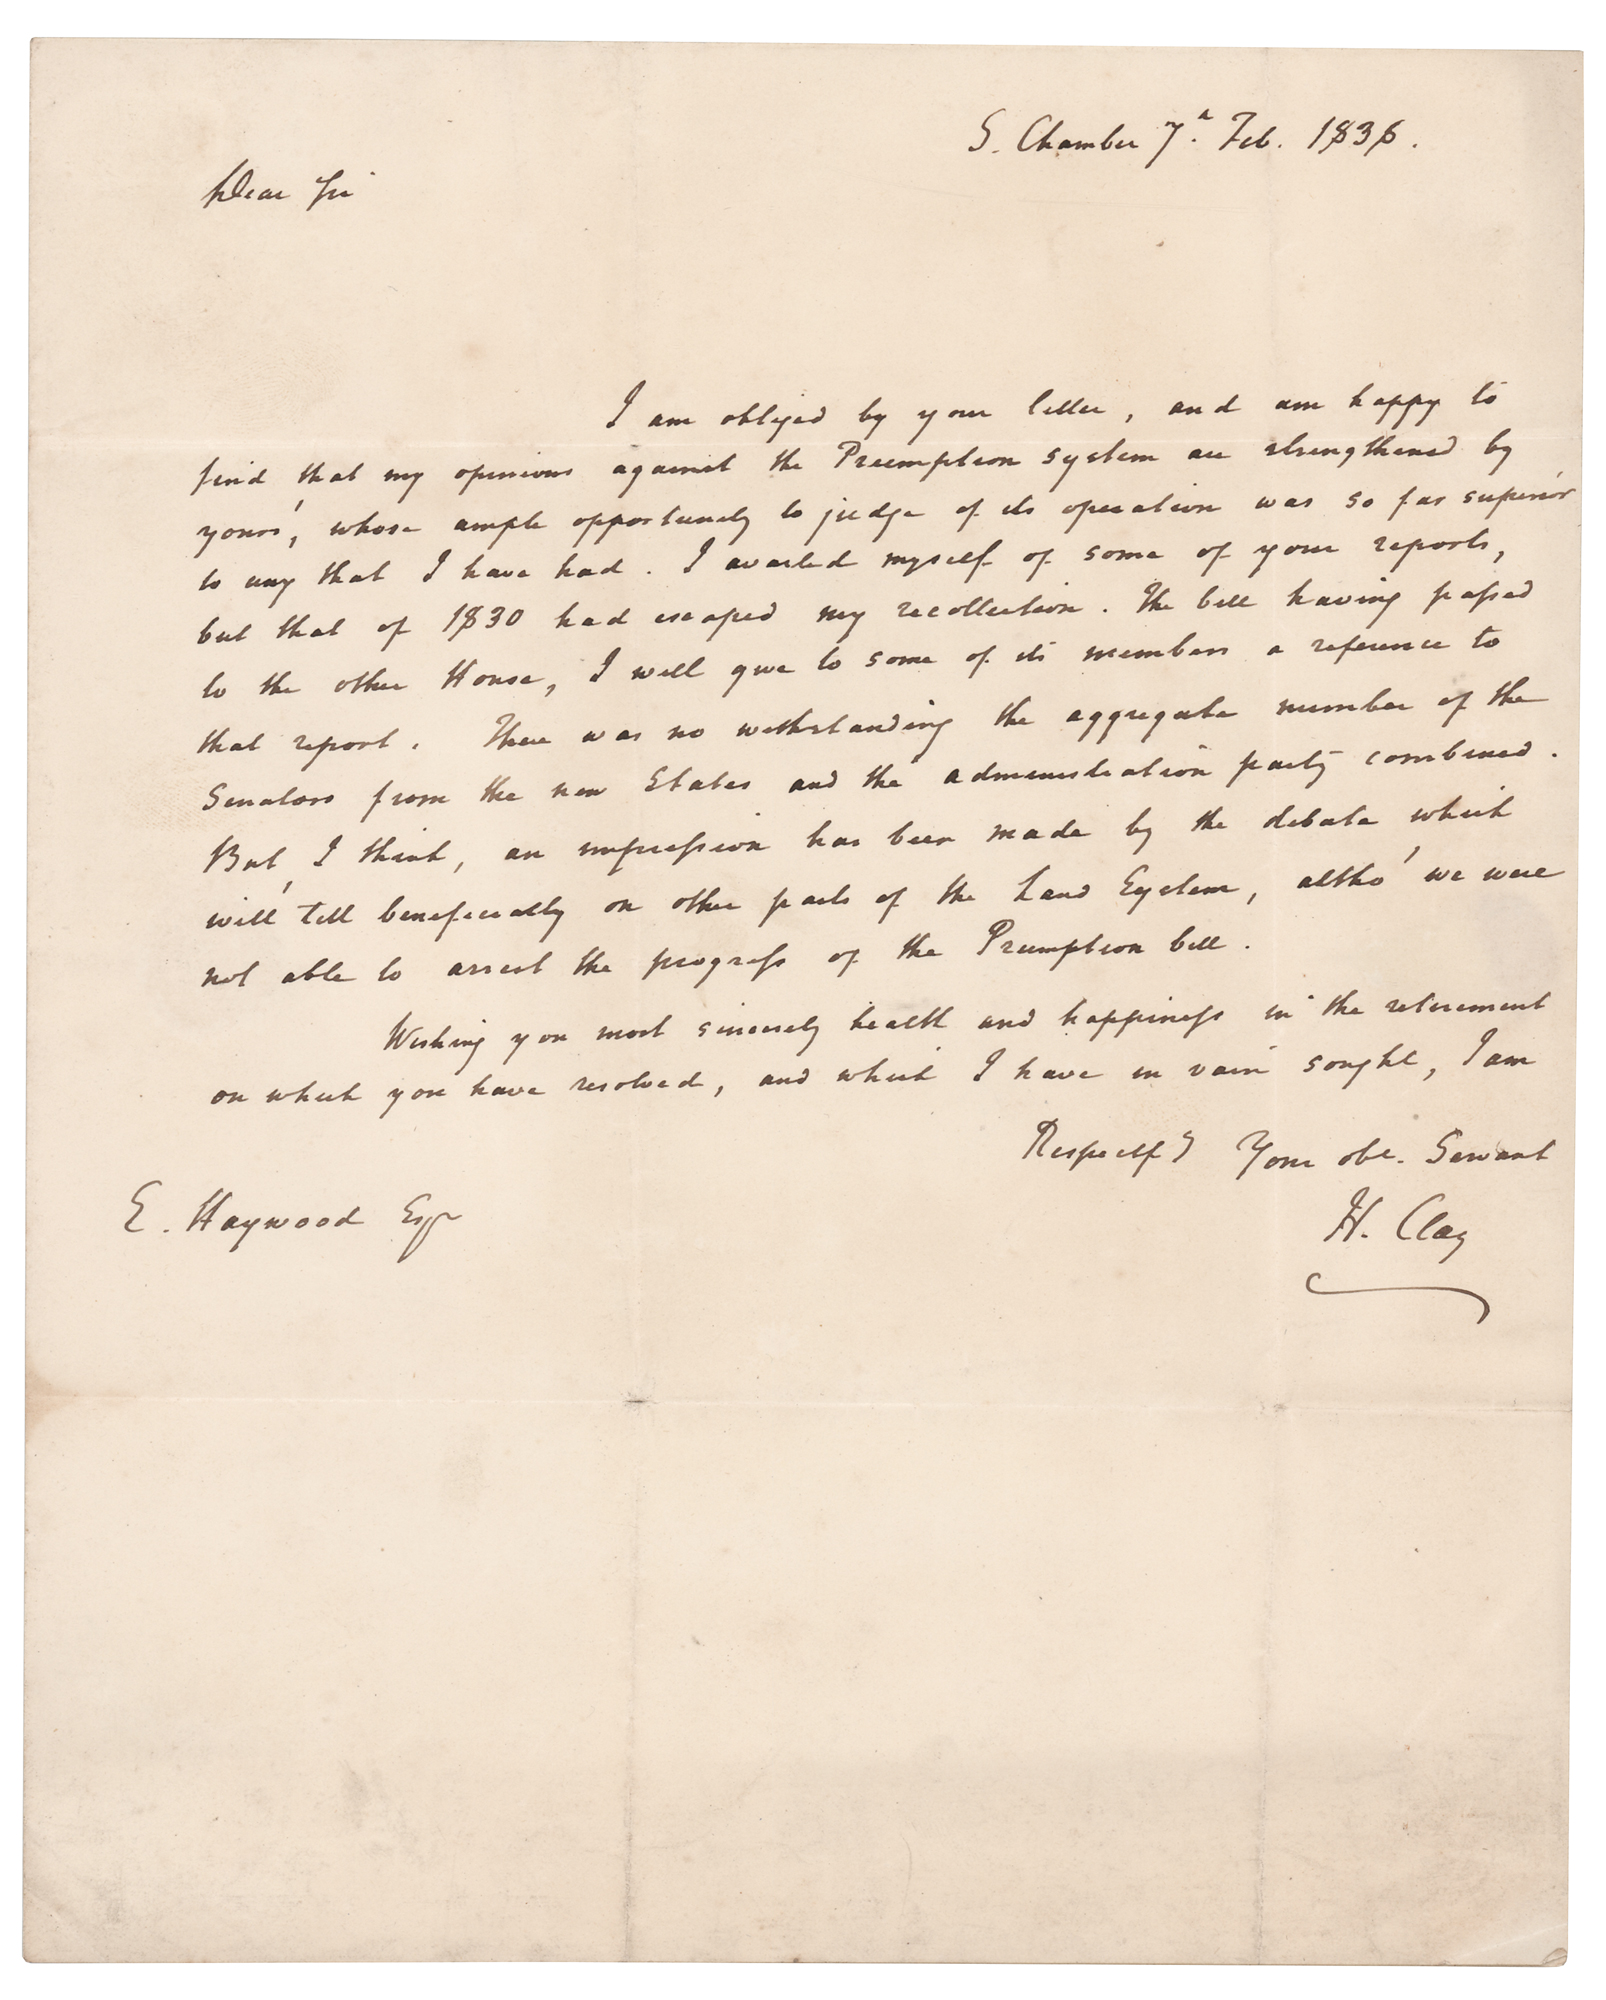 S. Chamber 7h. Feb. 1838.
Dear Sir
I am obliged by your letter, and am happy to
find that my opinions against the Preemption system are strengthened by
yours, whose ample opportunity to judge of its operation was so far superior
to any that I have had. I availed myself of some of your reports,
but that of 1830 had escaped my recollection. The bill having passed
to the other House, I will give to some of its members a reference to
that report. There was no withstanding the aggregate number of the
Senators from the new States and the administration party combined.
But, I think, an impression has been made by the debate which
will tell beneficially on other parts of the Land System, altho' we were
not able to arrest the progress of the Preemption bill.
Wishing you most sincerely health and happiness in the retirement
on which you have resolved, and which I have in vain sought, I am
Respectfy Your obt. Servant
H. Clay
E. Haywood Esqr